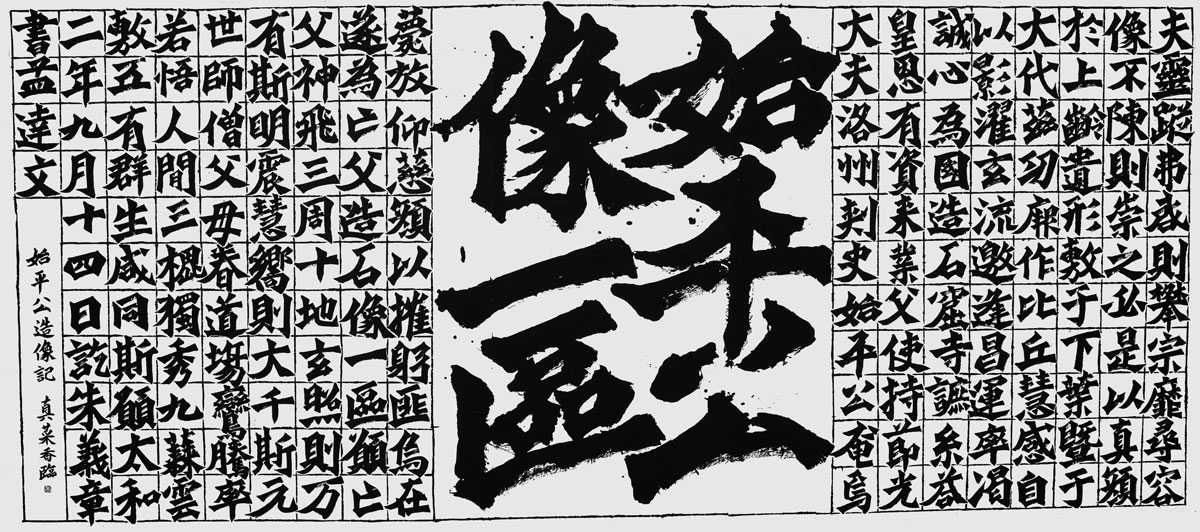 夫靈蹤弗啟則攀宗靡尋容
像不陳則崇之必是以真顏
於上齡遺形敷于下葉暨于
大代茲功厥作比丘慧感自
以影濯玄流邀逢昌運率渴
誠心為國造石窟寺系荅
皇恩有資来業父使持節光
大夫洛州刺史始平公奄焉
始平公
像一區
薨放仰慈顏以摧躬匪烏在
遂為亡父造石像一區願亡
父神飛三周十地玄照則万
有斯明震慧嚮則大千斯元
世師僧父母眷道場鸞騰率
若悟人間三槐獨秀九蕀雲
敷五有群生咸同斯願太和
二年九月十四日訖朱義章
書孟達文
始平公造像記 真菜香臨